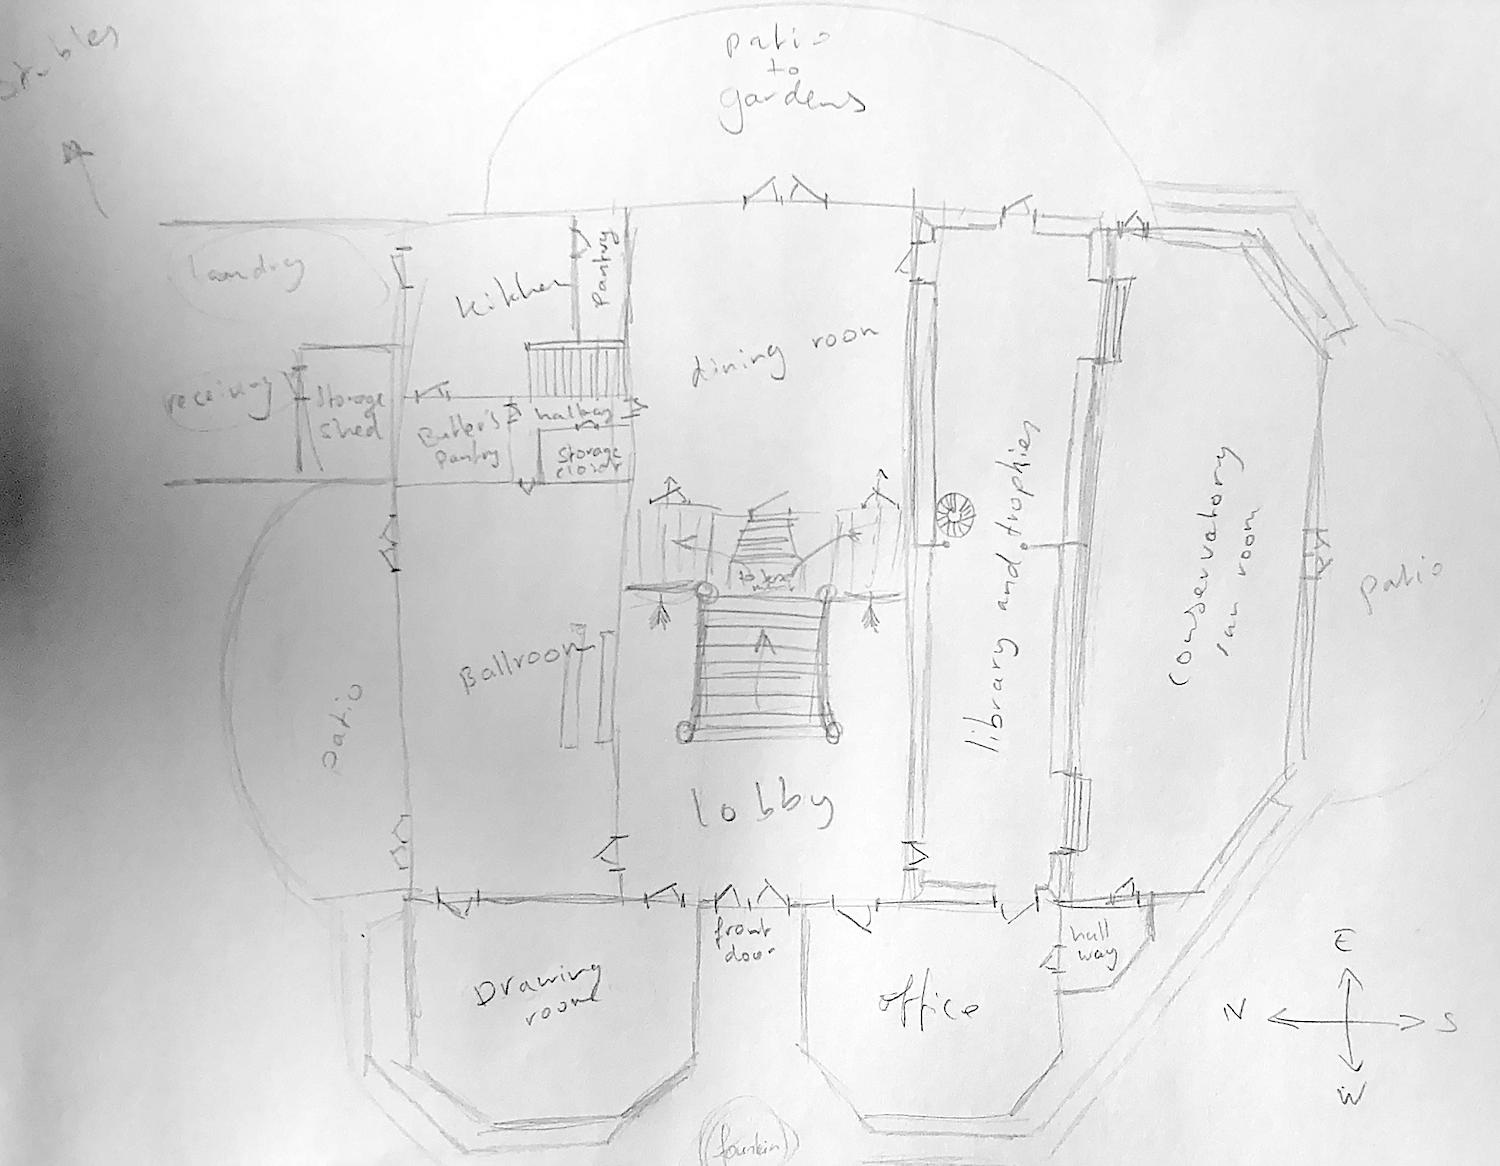 Stables
patio
to
gardens
laundry
kitchen
Pantry
dining room
receiving
Storage
shed
Butler's
Pantry
hallway
storage
closet
library and trophies
Conservatory
sun room
patio
Ballroom
patio
lobby
front
door
Drawing
room
office
hall
way
E
N
S
W
(fountain)